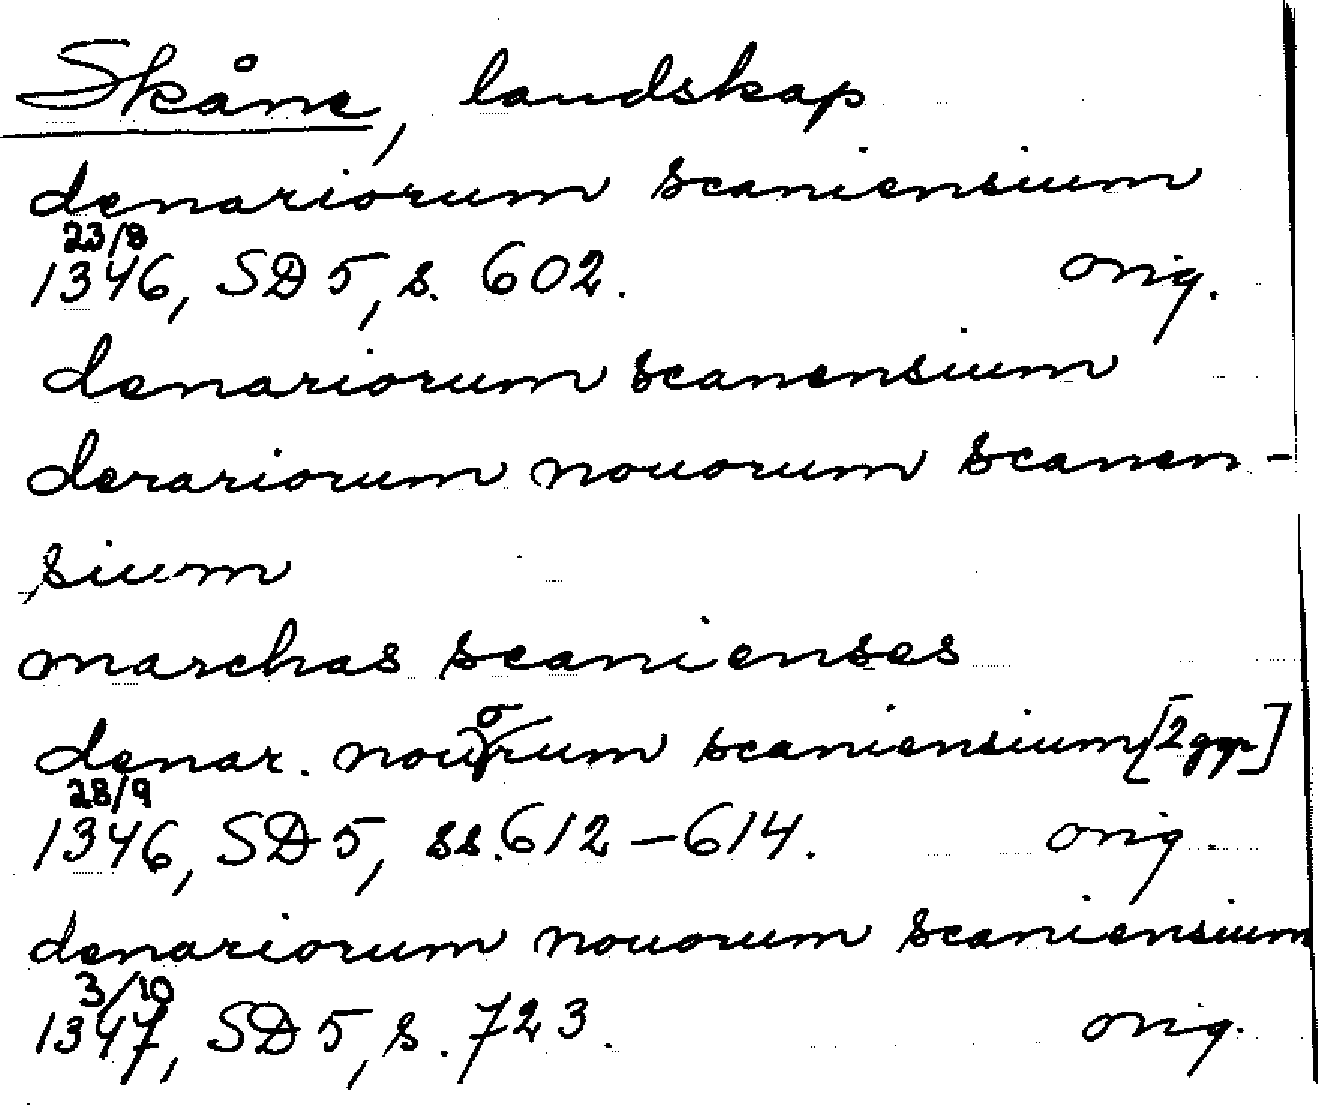 Skåne, landskap
denariorum scaniensium
23/8
1346, SD 5, s. 602. orig.
denariorum scanensium
derariorum nouorum scanen-
sium
marchas scanienses
denar. nouorum scaniensium [2 ggr]
28/9
1346, SD 5, ss. 612-614. orig.
denariorum nouorum scaniensium
3/10
1347, SD 5, s. 723. orig.